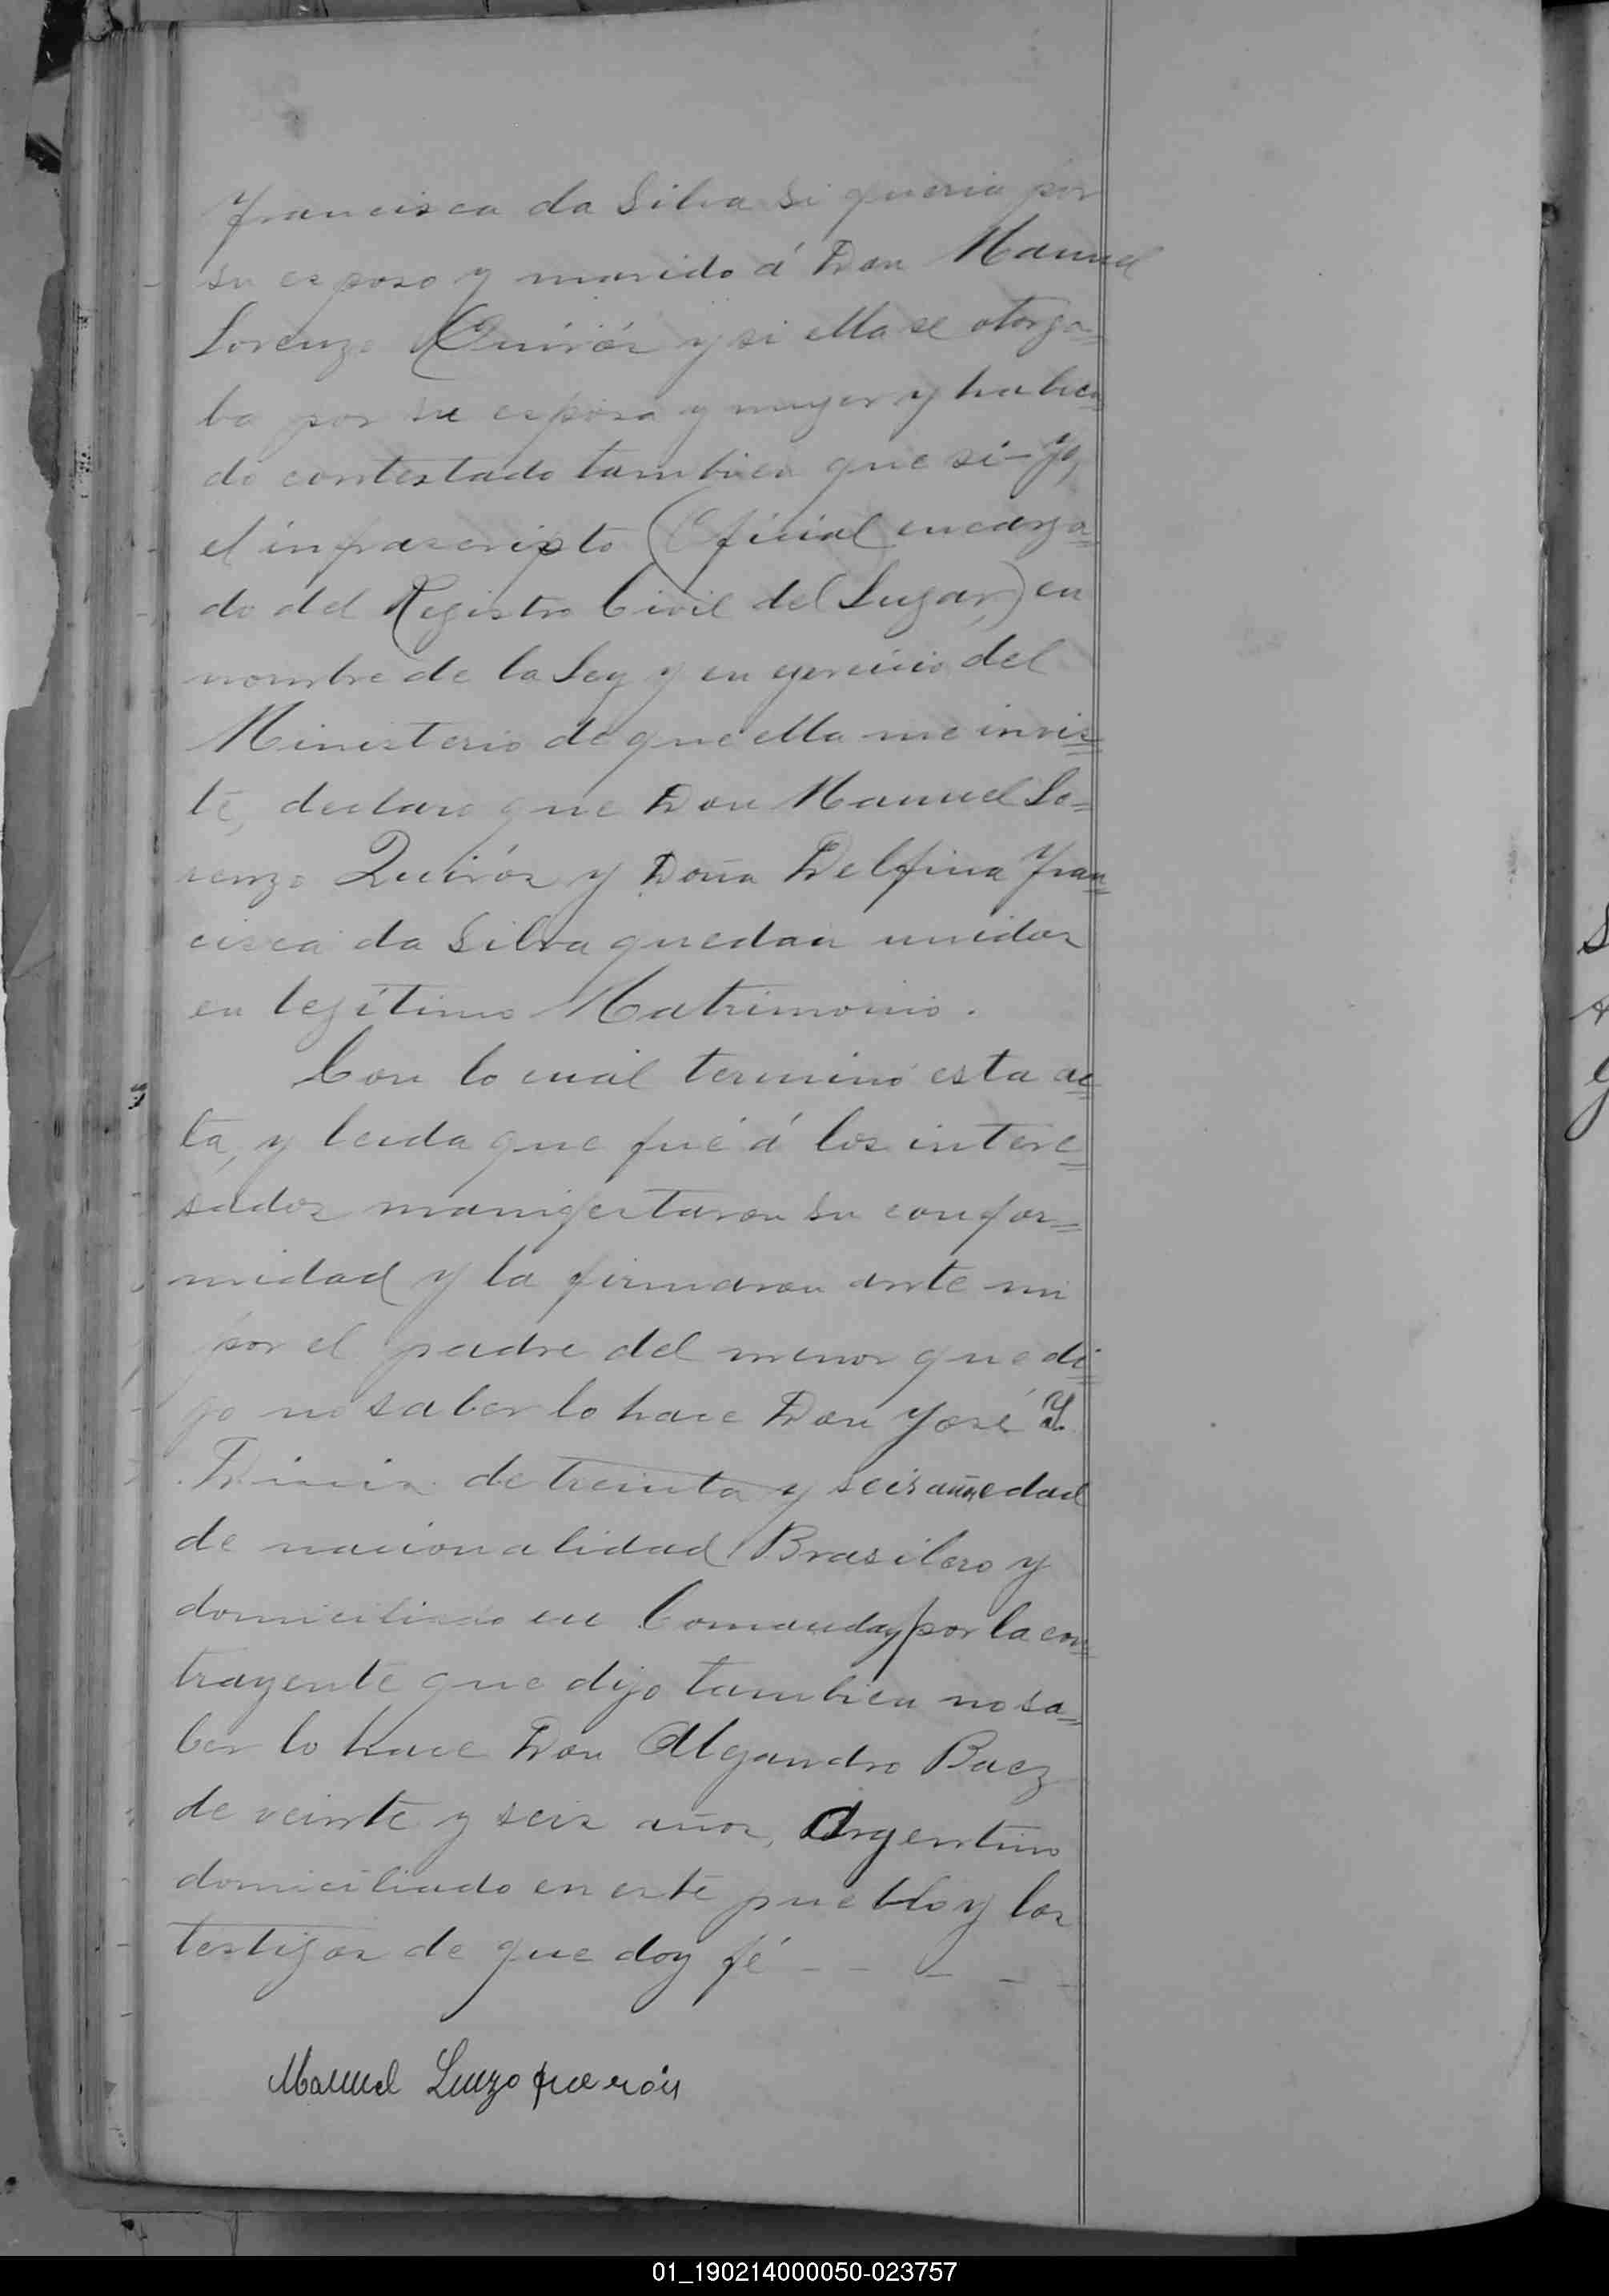 Francisca da Silva si queria por
su esposo y marido á Don Manuel
Lorenzo Quirós y si ella se otorga=
ba por su esposa y muger y habien
do contestado tambien que si – Yo,
el infrascripto (Oficial encarga=
do del Registro Civil del (Lugar,) en
nombre de la Ley y en ejercicio del
Ministerio de que ella me invis=
te, declaro que Don Manuel Lo=
renzo Quirós y Doña Delfina Fran=
cisca da Silva quedan unidos
en legítimo Matrimonio.
Con lo cual terminó esta ac=
ta, y leida que fué á los intere=
sados manifestaron su confor=
midad y la firmaron ante mi
por el padre del menor que di=
jo no saber lo hace Don José Y.
de treinta y seis años edad
de nacionalidad Brasilero y
domiciliado en Comanday/por la con=
trayente que dijo tambien no sa=
ber lo hace Don Alejandro Baez
de veinte y seis años, Argentino
domiciliado en este pueblo y los
testigos de que doy fé - - - - -
Manuel
S
01_190214000050-023757